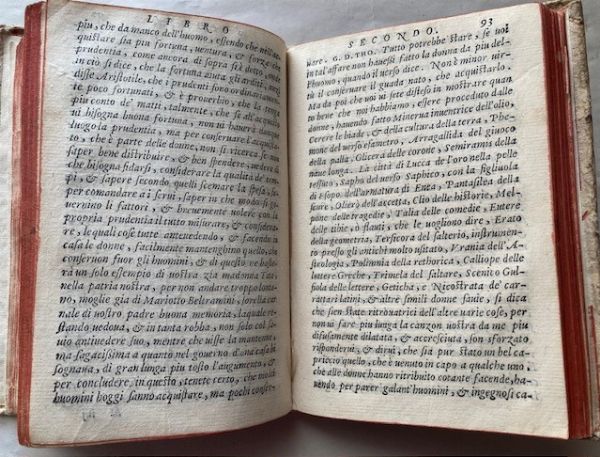 LIBRO
piu, che da manco dell'huomo, essendo che nell'ac-
quistare sia piu fortuna, uentura, e forze che
prudentia, come ancora di sopra s'è detto, onde
in ciò si dice, che la fortuna aiuta gli arditi, non
disse Aristotile, che i prudenti sono ordinariamente
poco fortunati, & è prouerbio, che la tenga
piu conto de' matti, talmente, che se all'acquistar
ui bisogna buona fortuna, non ui hauerà dunque
luogo la prudentia, ma per conseruare l'acquista-
to, che è parte delle donne, non si ricerca, se non
saper bene distribuire, & ben spendere, uedere di
che bisogna fidarsi, considerare la qualità de' tem-
pi, & sapere secondo quelli scemar la spesa, &
per comandare a i serui, saper in che modo si go-
uernino li fattori, & breuemente uolere con la
propria prudentia il tutto misurare, & considera-
re, le quali cose tutte antiuedendo, & facendo in
casa le donne, facilmente mantenghino quello, che
conseruon fuor gli huomini, & di questo ne baste-
rà un solo essempio di uostra zia madonna Tita
nella patria nostra, per non andare troppo lonta-
no, moglie già di Mariotto Beltramini, sorella car-
nale di uostro padre buona memoria, laquale re-
stando uedoua, & in tanta robba, non solo col sa-
uio antiuedere suo, mentre che uisse la mantenne,
ma sagacissima a quanto nel gouerno d'una casa bi-
sognaua, di gran lunga piu tosto l'augumentò, &
per concludere, in questo, tenete certo, che molti
huomini hoggi sanno acquistare, ma pochi conser-
SECONDO. 93
uare. G. D. THO. Tutto potrebbe stare, se uoi
in tal'affare non hauessi fatto la donna da piu del-
l'huomo, quando il uerso dice. Non è minor uir-
tù il conseruare il guadagnato, che acquistarlo.
Ma da poi che uoi ui sete disteso in mostrare quan-
to bene che noi habbiamo, essere proceduto dalle
donne, hauendo fatto Minerua inuentrice dell'olio,
Cerere le biade, & della cultura della terra, The-
mone del uerso esametro, Arragallida del giuoco
della palla, Glicera delle corone, Semiramis della
naue longa. La città di Lucca de l'oro nella pelle
tessuto, Sapho del uerso Saphico, con la figliuola
di Esopo, dell'armatura di Enea, Pantasilea della
scure, Oliera dell'accetta, Clio delle historie, Mel-
pone delle tragedie, Talia delle comedie, Eutere
delle tibie, ò flauti, che le uogliono dire, Erato
della geometria, Tersicora del salterio, instrumen-
to presso gli antichi molto usitato, Vrania dell'A-
strologia, Polimnia della rethorica, Calliope delle
lettere Greche, Trimela del saltare, Scenito Gul-
fiola delle lettere, Geticha, e Nicostrata de' car-
ratteri latini, & altre simili donne sauie, si dica
che sien state ritrouatrici dell'altre uarie cose, per
non ui fare piu lunga la canzon uostra da me piu
diffusamente dilatata, & accresciuta, son sforzato
rispondervi, & dirui, che sia pur stato un bel ca-
priccio quello, che è uenuto in capo a qualche uno,
che alle donne hanno ritribuito cotante facende, ha-
uendo per parer galant'huomini, & ingegnosi ca-